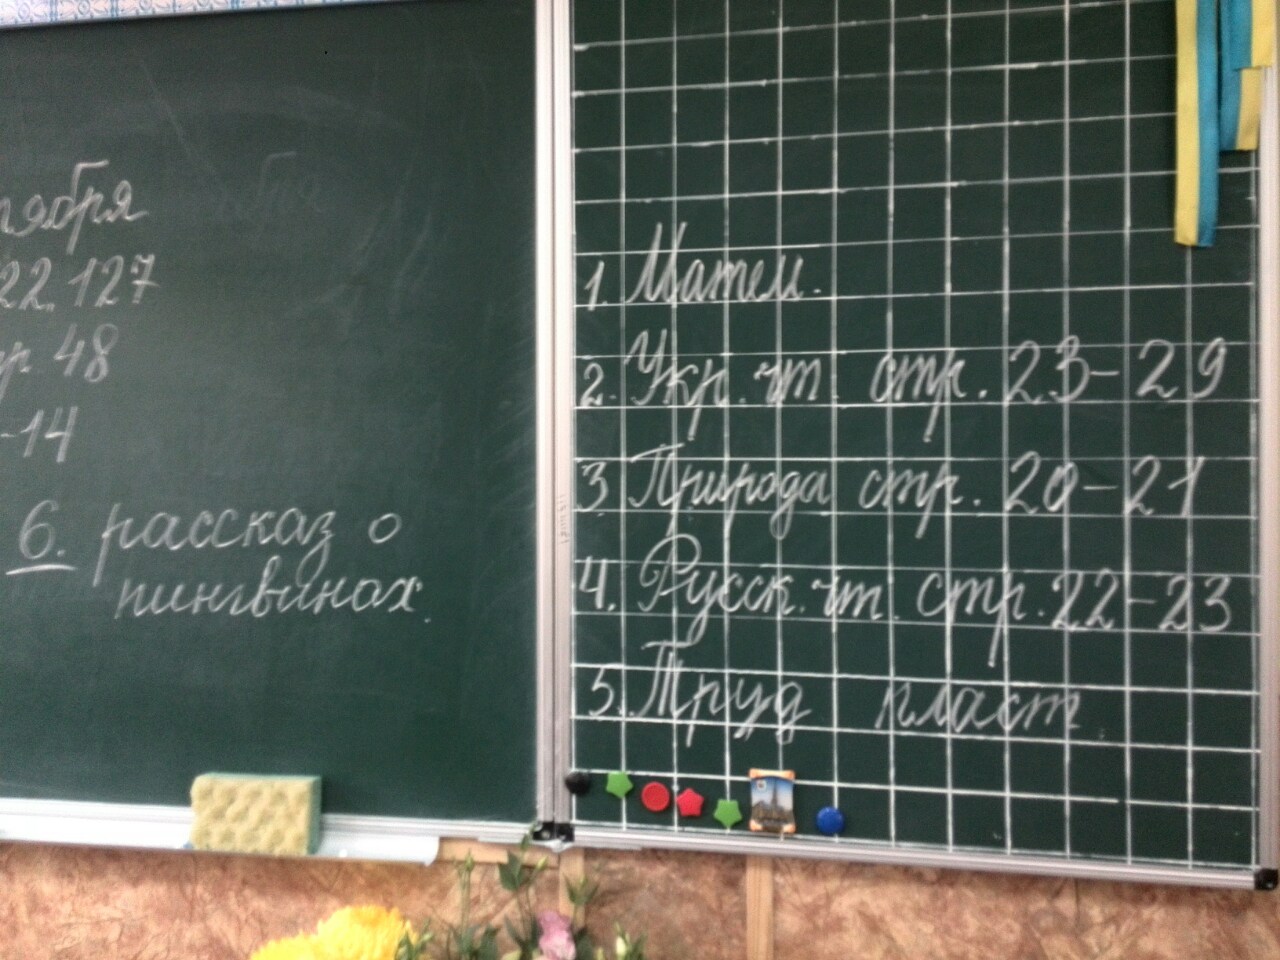 тября
22, 127
48
-14
6. рассказ о
пингвинах.
1. Матем.
2. Укр. чт. стр. 23-29
3 Природа стр. 20-21
4. Русск. чт. стр. 22-23
5. Труд пласт